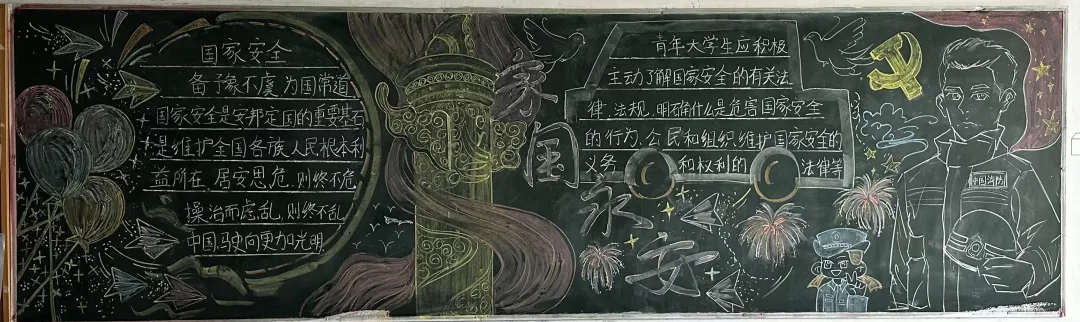 国家安全
备予豫不虞,为国常道,
国家安全是安邦定国的重要基石
是维护全国各族人民根本利
益所在,居安思危,则终不危,
操治而虑乱,则终不乱
中国驶向更加光明
家国永安
青年大学生应积极
主动了解国家安全的有关法
律,法规,明确什么是危害国家安全
的行为,公民和组织维护国家安全的
义务 和权利的 法律等
中国消防